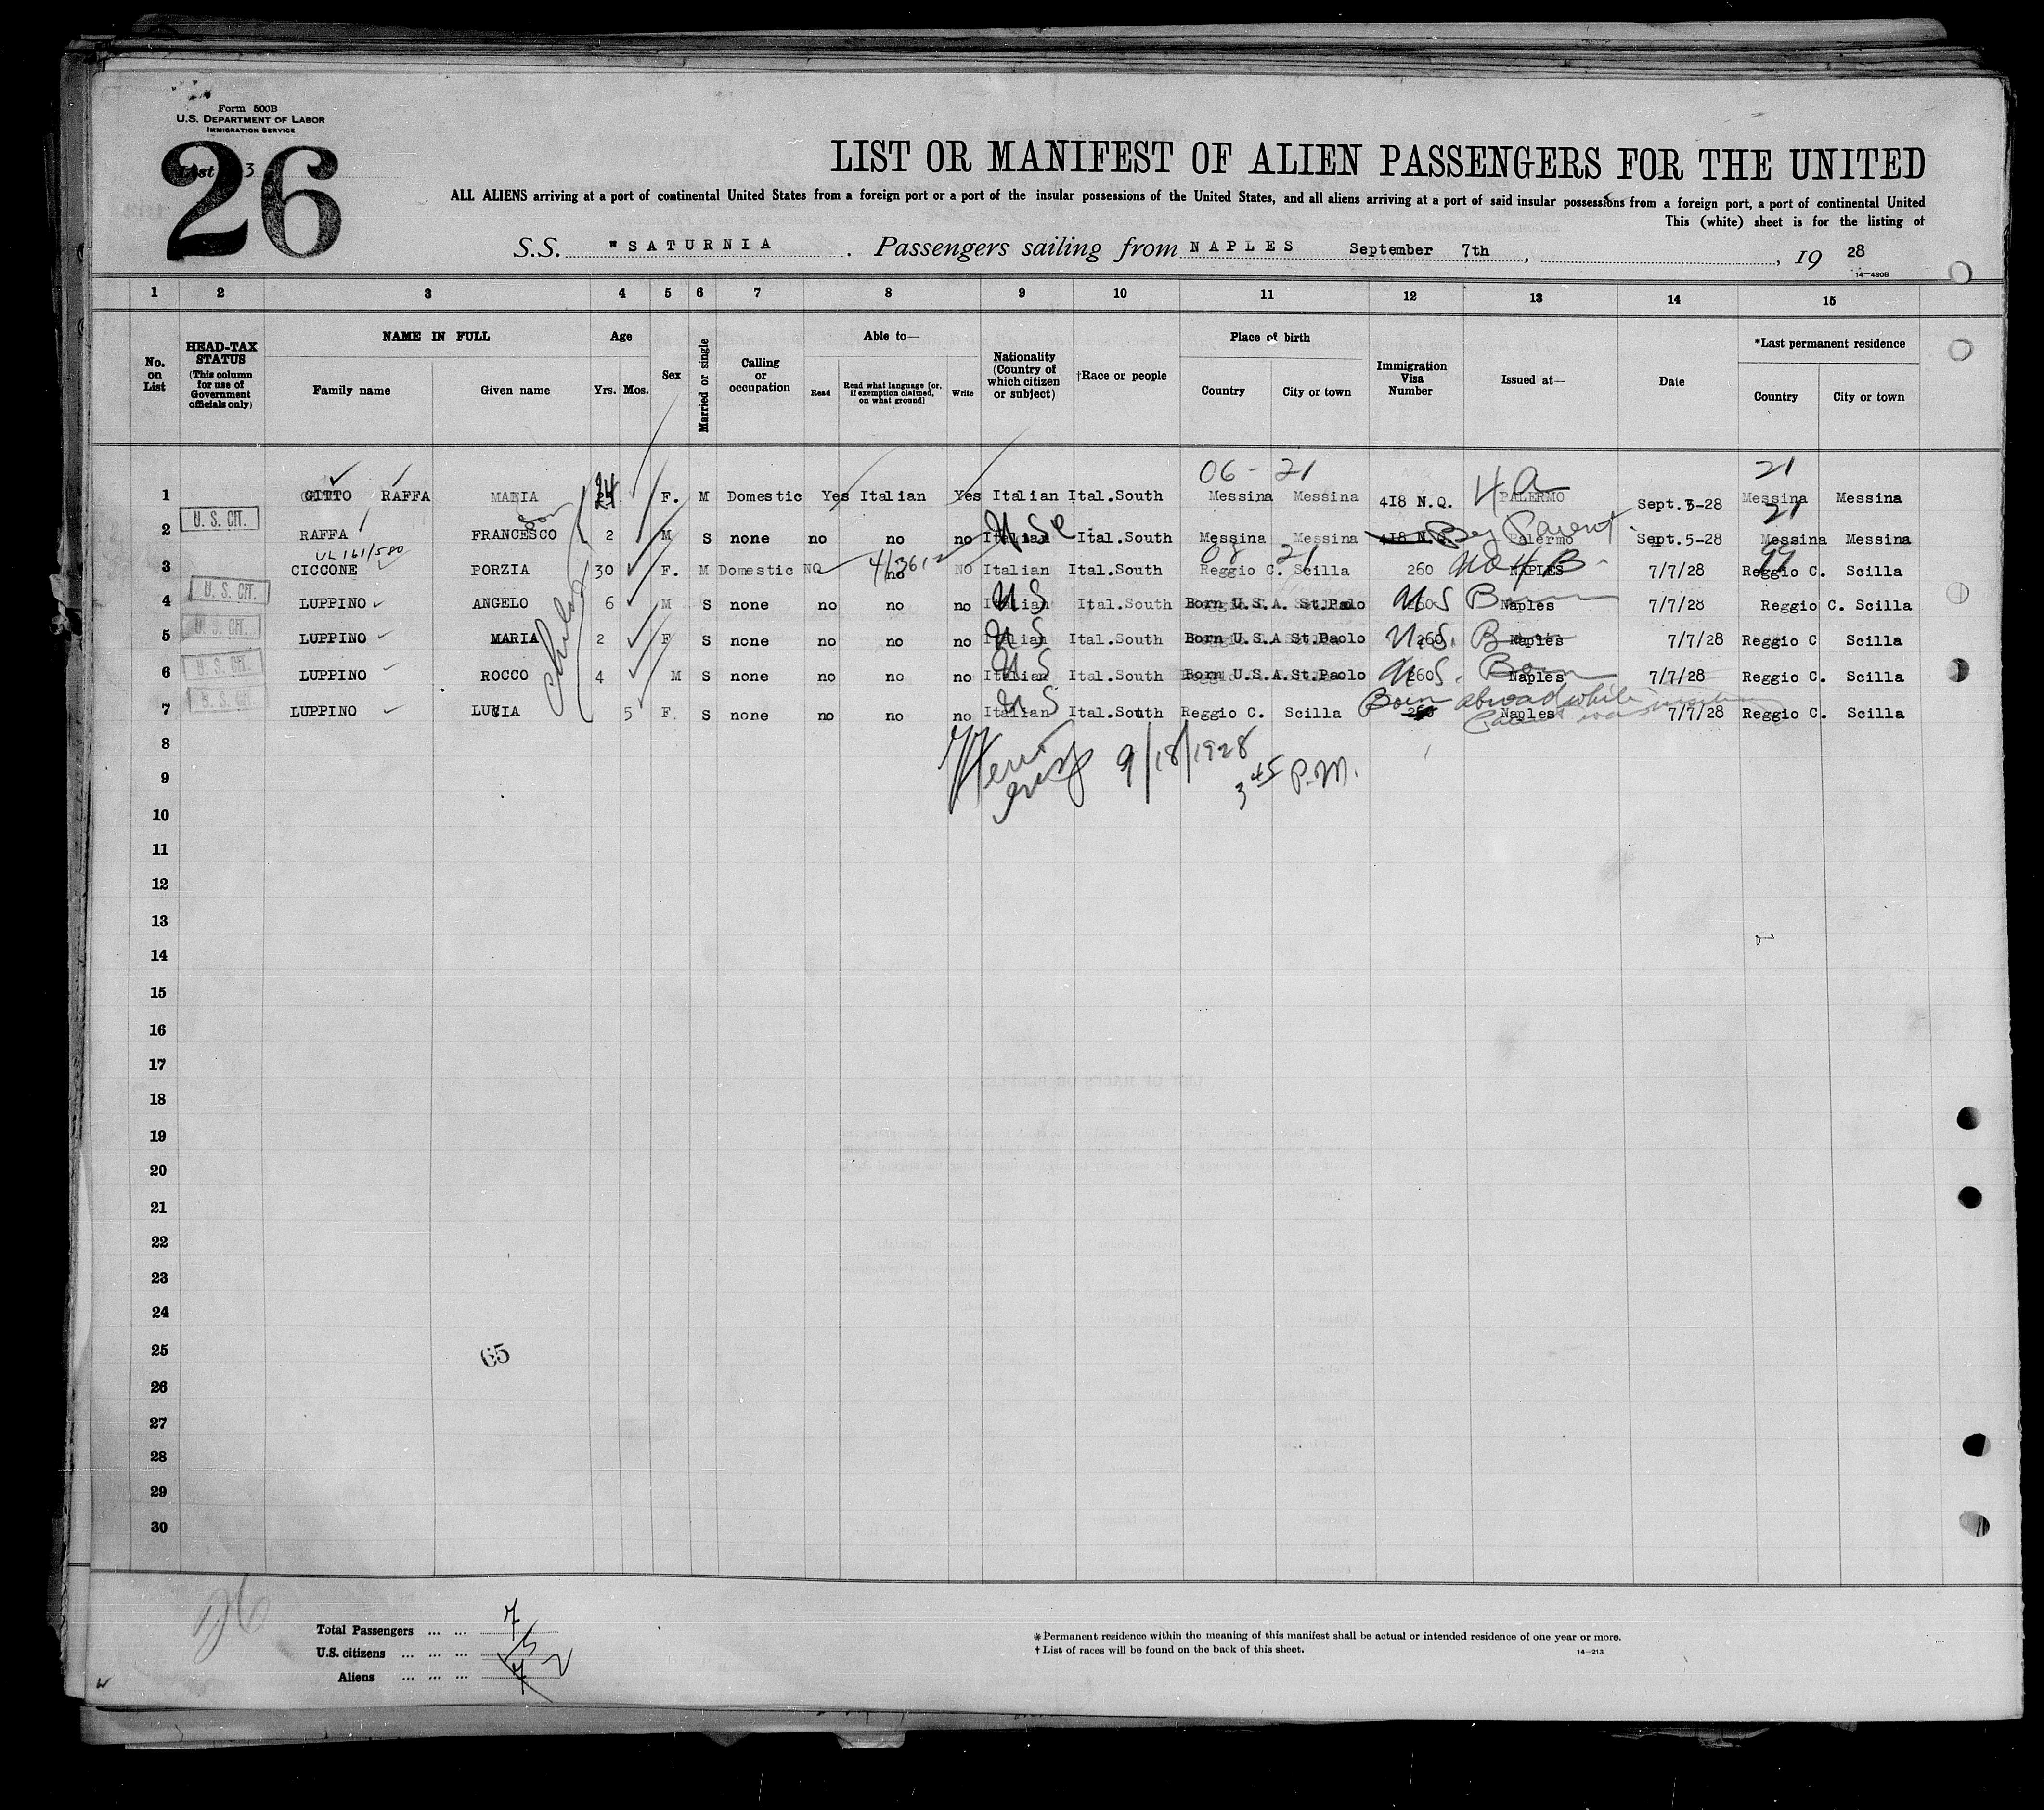 Form 500B
U.S. DEPARTMENT OF LABOR
IMMIGRATION SERVICE
List 3
26
LIST OR MANIFEST OF ALIEN PASSENGERS FOR THE UNITED
ALL ALIENS arriving at a port of continental United States from a foreign port or a port of the insular possessions of the United States, and all aliens arriving at a port of said insular possessions from a foreign port, a port of continental United
This (white) sheet is for the listing of
S.S. "SATURNIA . Passengers sailing from NAPLES September 7th, , 19 28
14-480B
1 2 3 4 5 6 7 8 9 10 11 12 13 14 15
No. on List
HEAD-TAX STATUS (This column for use of Government officials only)
NAME IN FULL
Family name Given name
Age
Yrs. Mos.
Sex
Married or single
Calling or occupation
Able to—
Read Read what language [or, if exemption claimed, on what ground] Write
Nationality (Country of which citizen or subject)
†Race or people
Place of birth
Country City or town
Immigration Visa Number
Issued at—
Date
*Last permanent residence
Country City or town
06 - 21 21
1 GITTO RAFFA MARIA 24 F. M Domestic Yes Italian Yes Italian Ital.South Messina Messina 418 N.Q. 4A PALERMO Sept.5-28 Messina Messina
U. S. CIT. son 21
2 RAFFA FRANCESCO 2 M S none no no no Italian Ital.South Messina Messina 418 N.Q. Palermo Parent Sept.5-28 Messina Messina
UL 161/580 08 21 99
3 CICCONE PORZIA 30 F. M Domestic NO no NO Italian Ital.South Reggio C. Scilla 260 NQ 4B- NAPLES 7/7/28 Reggio C. Scilla
U. S. CIT.
4 LUPPINO ANGELO 6 M S none no no no Italian US Ital.South Born U.S.A. St.Palo 260 US Born Naples 7/7/28 Reggio C. Scilla
U. S. CIT.
5 LUPPINO MARIA 2 F S none no no no Italian US Ital.South Born U.S.A St.Paolo 260 U.S. Naples 7/7/28 Reggio C Scilla
U. S. CIT.
6 LUPPINO ROCCO 4 M S none no no no Italian US Ital.South Born U.S.A.St.Paolo 260 U.S. Born Naples 7/7/28 Reggio C. Scilla
U. S. CIT.
Children
Born abroad while
7 LUPPINO LUCIA 5 F. S none no no no Italian US Ital.South Reggio C. Scilla 260 Naples 7/7/28 Reggio C. Scilla
8
9/18/1928
3 45 P.M.
9
10
11
12
13
14
15
16
17
18
19
20
21
22
23
24
25
65
26
27
28
29
30
26
Total Passengers ... ... 7
U.S. citizens ... ... ... 5
Aliens ... ... ... 7 2
* Permanent residence within the meaning of this manifest shall be actual or intended residence of one year or more.
† List of races will be found on the back of this sheet.
14-213